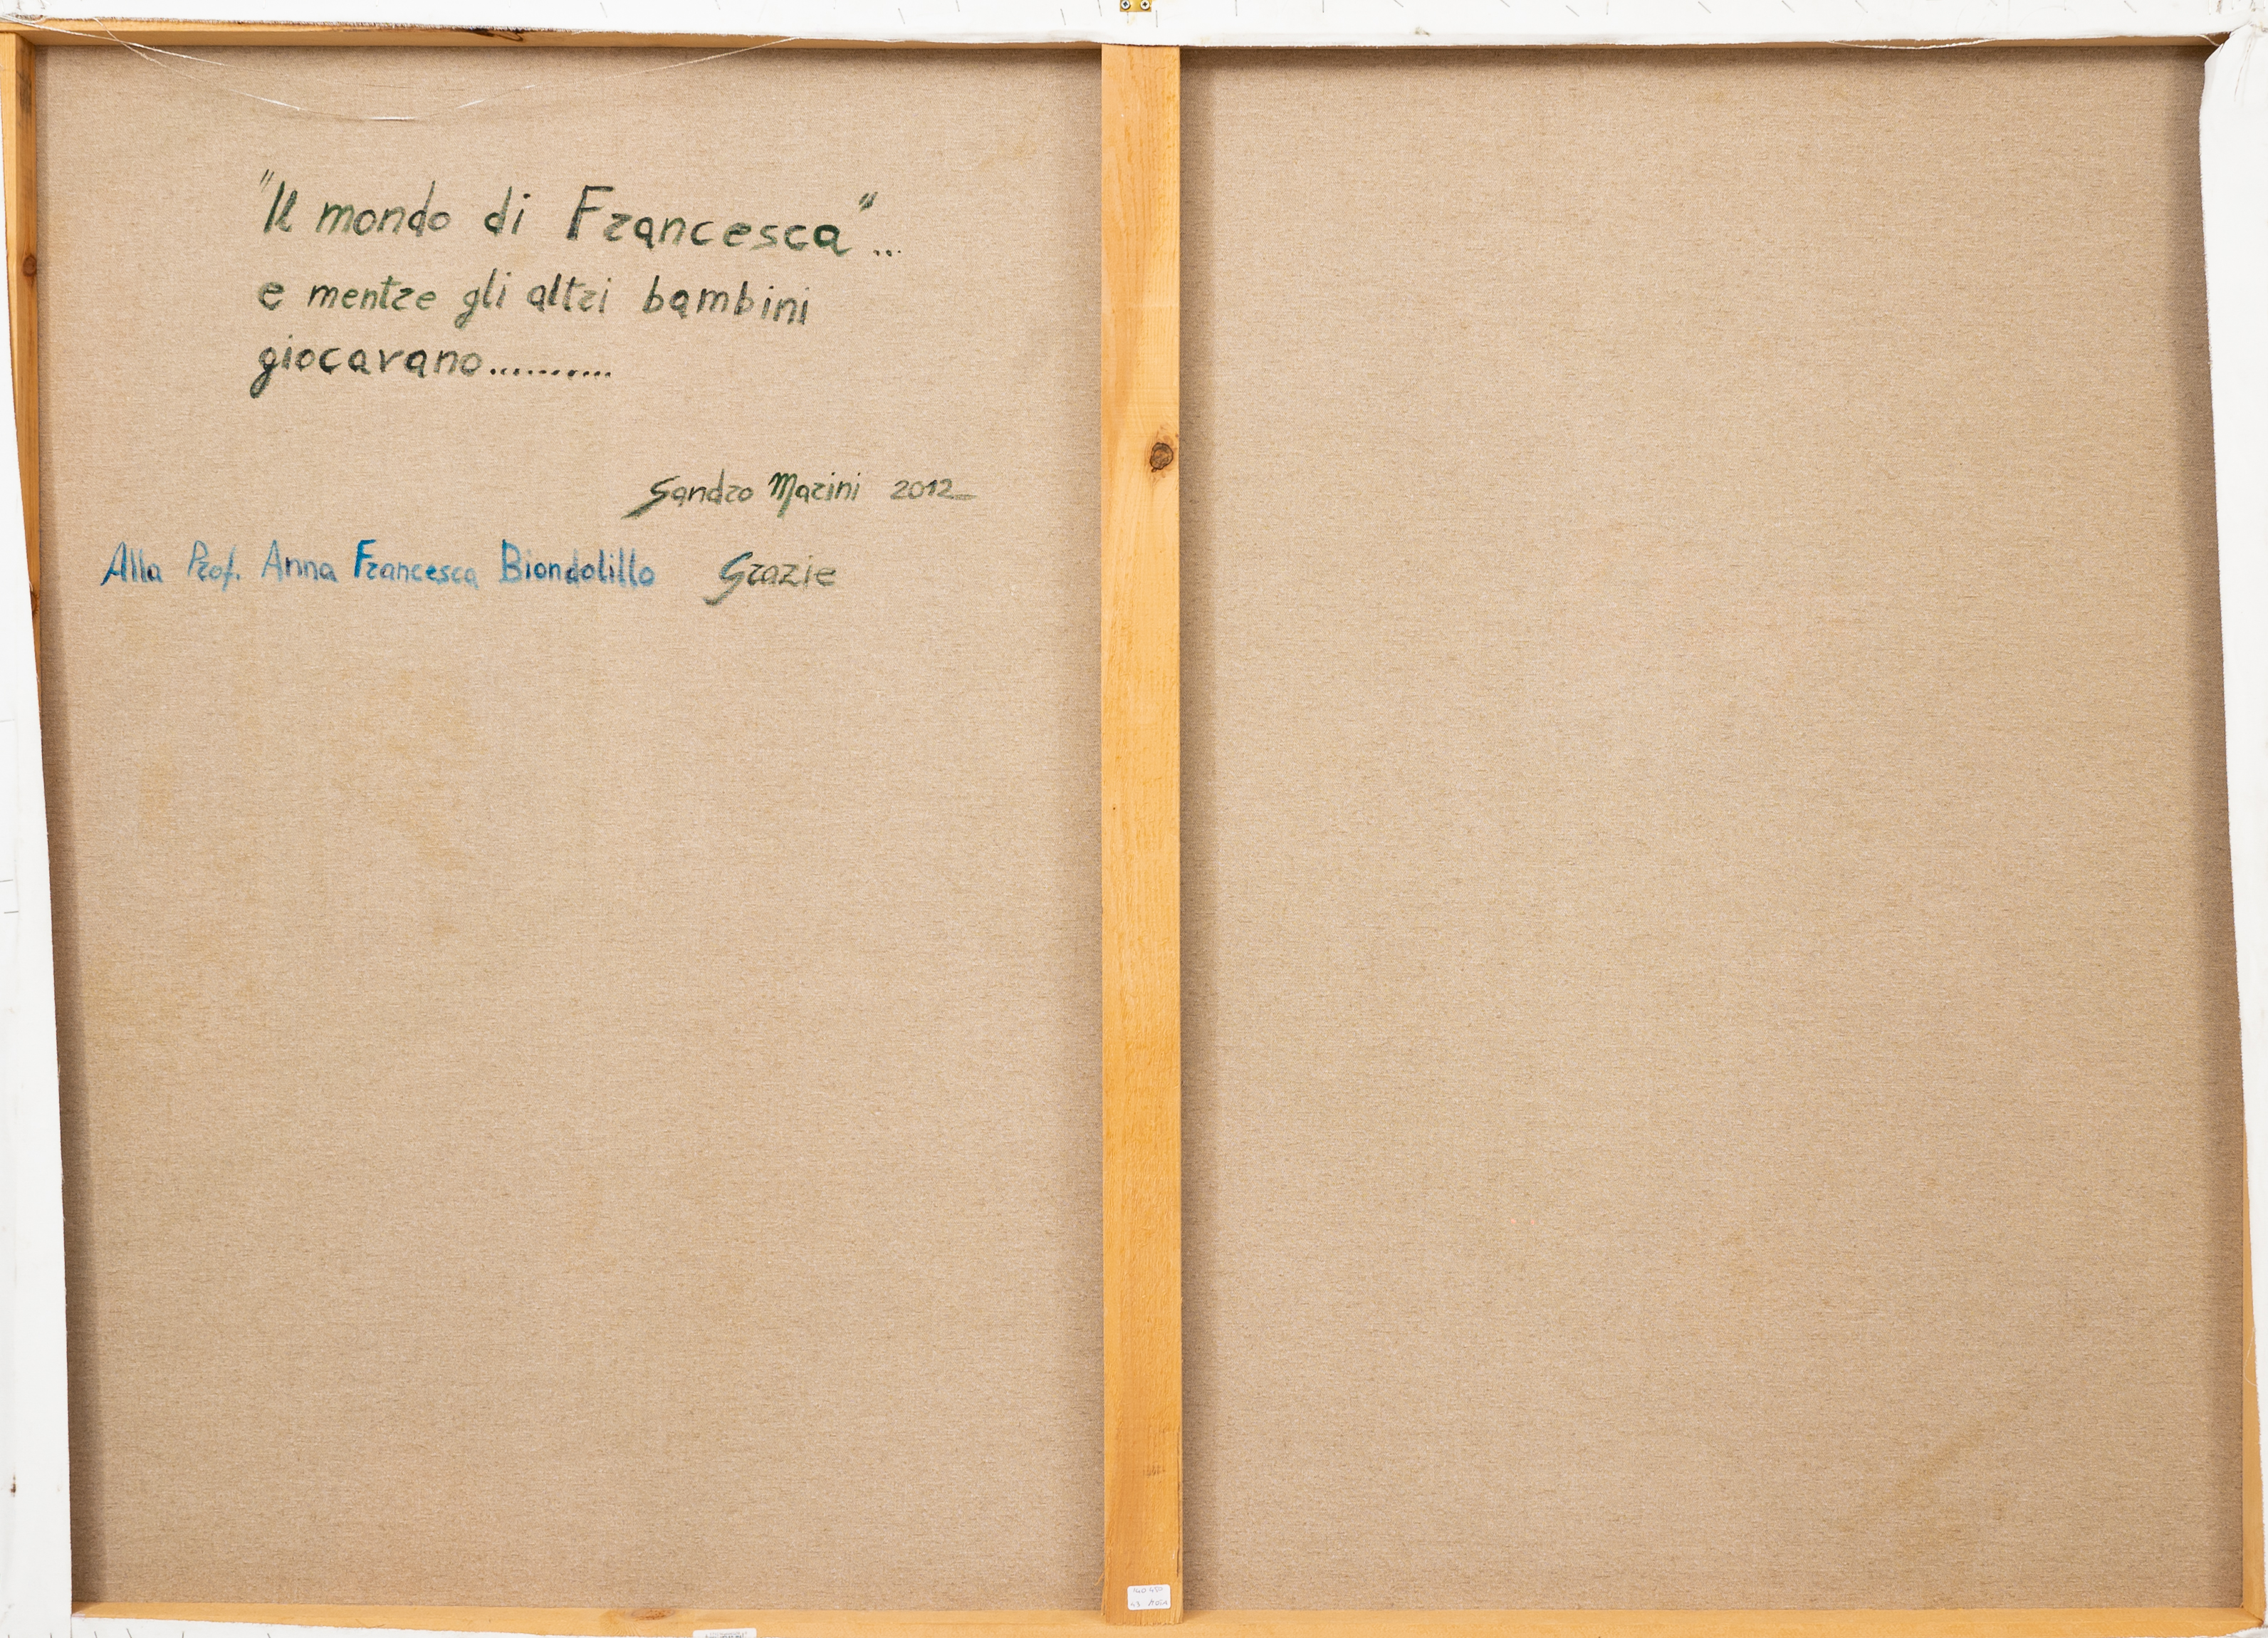 "Il mondo di Francesca"...
e mentre gli altri bambini
giocavano..........
Sandro Marini 2012
Alla Prof. Anna Francesca Biondolillo Grazie